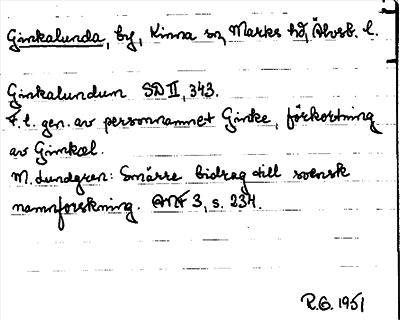 Ginkalunda, by, Kinna sn, Marks hd, Älvsb. l.
Ginkalundum SD II, 343.
F. l. gen. av personnamnet Ginke, förkortning
av Ginkel.
M. Lundgren: Smärre bidrag till svensk
namnforskning. ANF 3, s. 234.
R.G. 1951